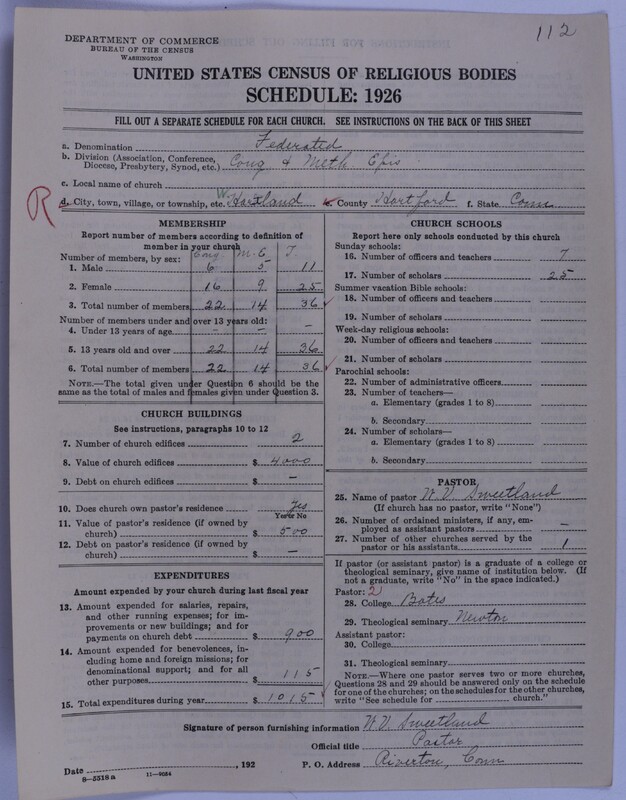 112
DEPARTMENT OF COMMERCE
BUREAU OF THE CENSUS
WASHINGTON
UNITED STATES CENSUS OF RELIGIOUS BODIES
SCHEDULE: 1926
FILL OUT A SEPARATE SCHEDULE FOR EACH CHURCH. SEE INSTRUCTIONS ON THE BACK OF THIS SHEET
a. Denomination Federated
b. Division (Association, Conference, Diocese, Presbytery, Synod, etc.) Cong & Meth. Epis
c. Local name of church
R d. City, town, village, or township, etc. W Hartland e. County Hartford f. State Conn
MEMBERSHIP
Report number of members according to definition of
member in your church
Number of members, by sex: Cong. M.E. T.
1. Male 6 5 11
2. Female 16 9 25
3. Total number of members 22 14 36
Number of members under and over 13 years old:
4. Under 13 years of age - - -
5. 13 years old and over 22 14 36
6. Total number of members 22 14 36
NOTE.—The total given under Question 6 should be the
same as the total of males and females given under Question 3.
CHURCH BUILDINGS
See instructions, paragraphs 10 to 12
7. Number of church edifices 2
8. Value of church edifices $ 4000
9. Debt on church edifices $ —
10. Does church own pastor's residence Yes
Yes or No
11. Value of pastor's residence (if owned by
church) $ 500
12. Debt on pastor's residence (if owned by
church) $ —
EXPENDITURES
Amount expended by your church during last fiscal year
13. Amount expended for salaries, repairs,
and other running expenses; for im-
provements or new buildings; and for
payments on church debt $ 900
14. Amount expended for benevolences, in-
cluding home and foreign missions; for
denominational support; and for all
other purposes $ 115
15. Total expenditures during year $ 1015
CHURCH SCHOOLS
Report here only schools conducted by this church
Sunday schools:
16. Number of officers and teachers 7
17. Number of scholars 25
Summer vacation Bible schools:
18. Number of officers and teachers
19. Number of scholars
Week-day religious schools:
20. Number of officers and teachers
21. Number of scholars
Parochial schools:
22. Number of administrative officers
23. Number of teachers—
a. Elementary (grades 1 to 8)
b. Secondary
24. Number of scholars—
a. Elementary (grades 1 to 8)
b. Secondary
PASTOR
25. Name of pastor W. V. Sweetland
(If church has no pastor, write "None")
26. Number of ordained ministers, if any, em-
ployed as assistant pastors —
27. Number of other churches served by the
pastor or his assistants 1
If pastor (or assistant pastor) is a graduate of a college or
theological seminary, give name of institution below. (If
not a graduate, write "No" in the space indicated.)
Pastor: 2
28. College Bates
29. Theological seminary Newton
Assistant pastor:
30. College
31. Theological seminary
NOTE.—Where one pastor serves two or more churches,
Questions 28 and 29 should be answered only on the schedule
for one of the churches; on the schedules for the other churches,
write "See schedule for church."
Signature of person furnishing information W. V. Sweetland
Official title Pastor
Date , 192 P. O. Address Riverton, Conn
8—5518 a 11—9054